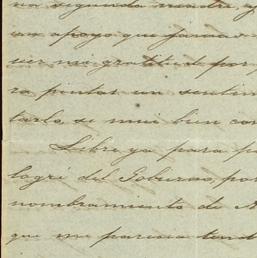 na segunda madre, y
un apoyo que jamas
mi gratitud por
ra pintar un sentim
tarlo se mui bien con
Libre ya para p
logré del Gobierno, por
nombramiento de
que me parecia tend